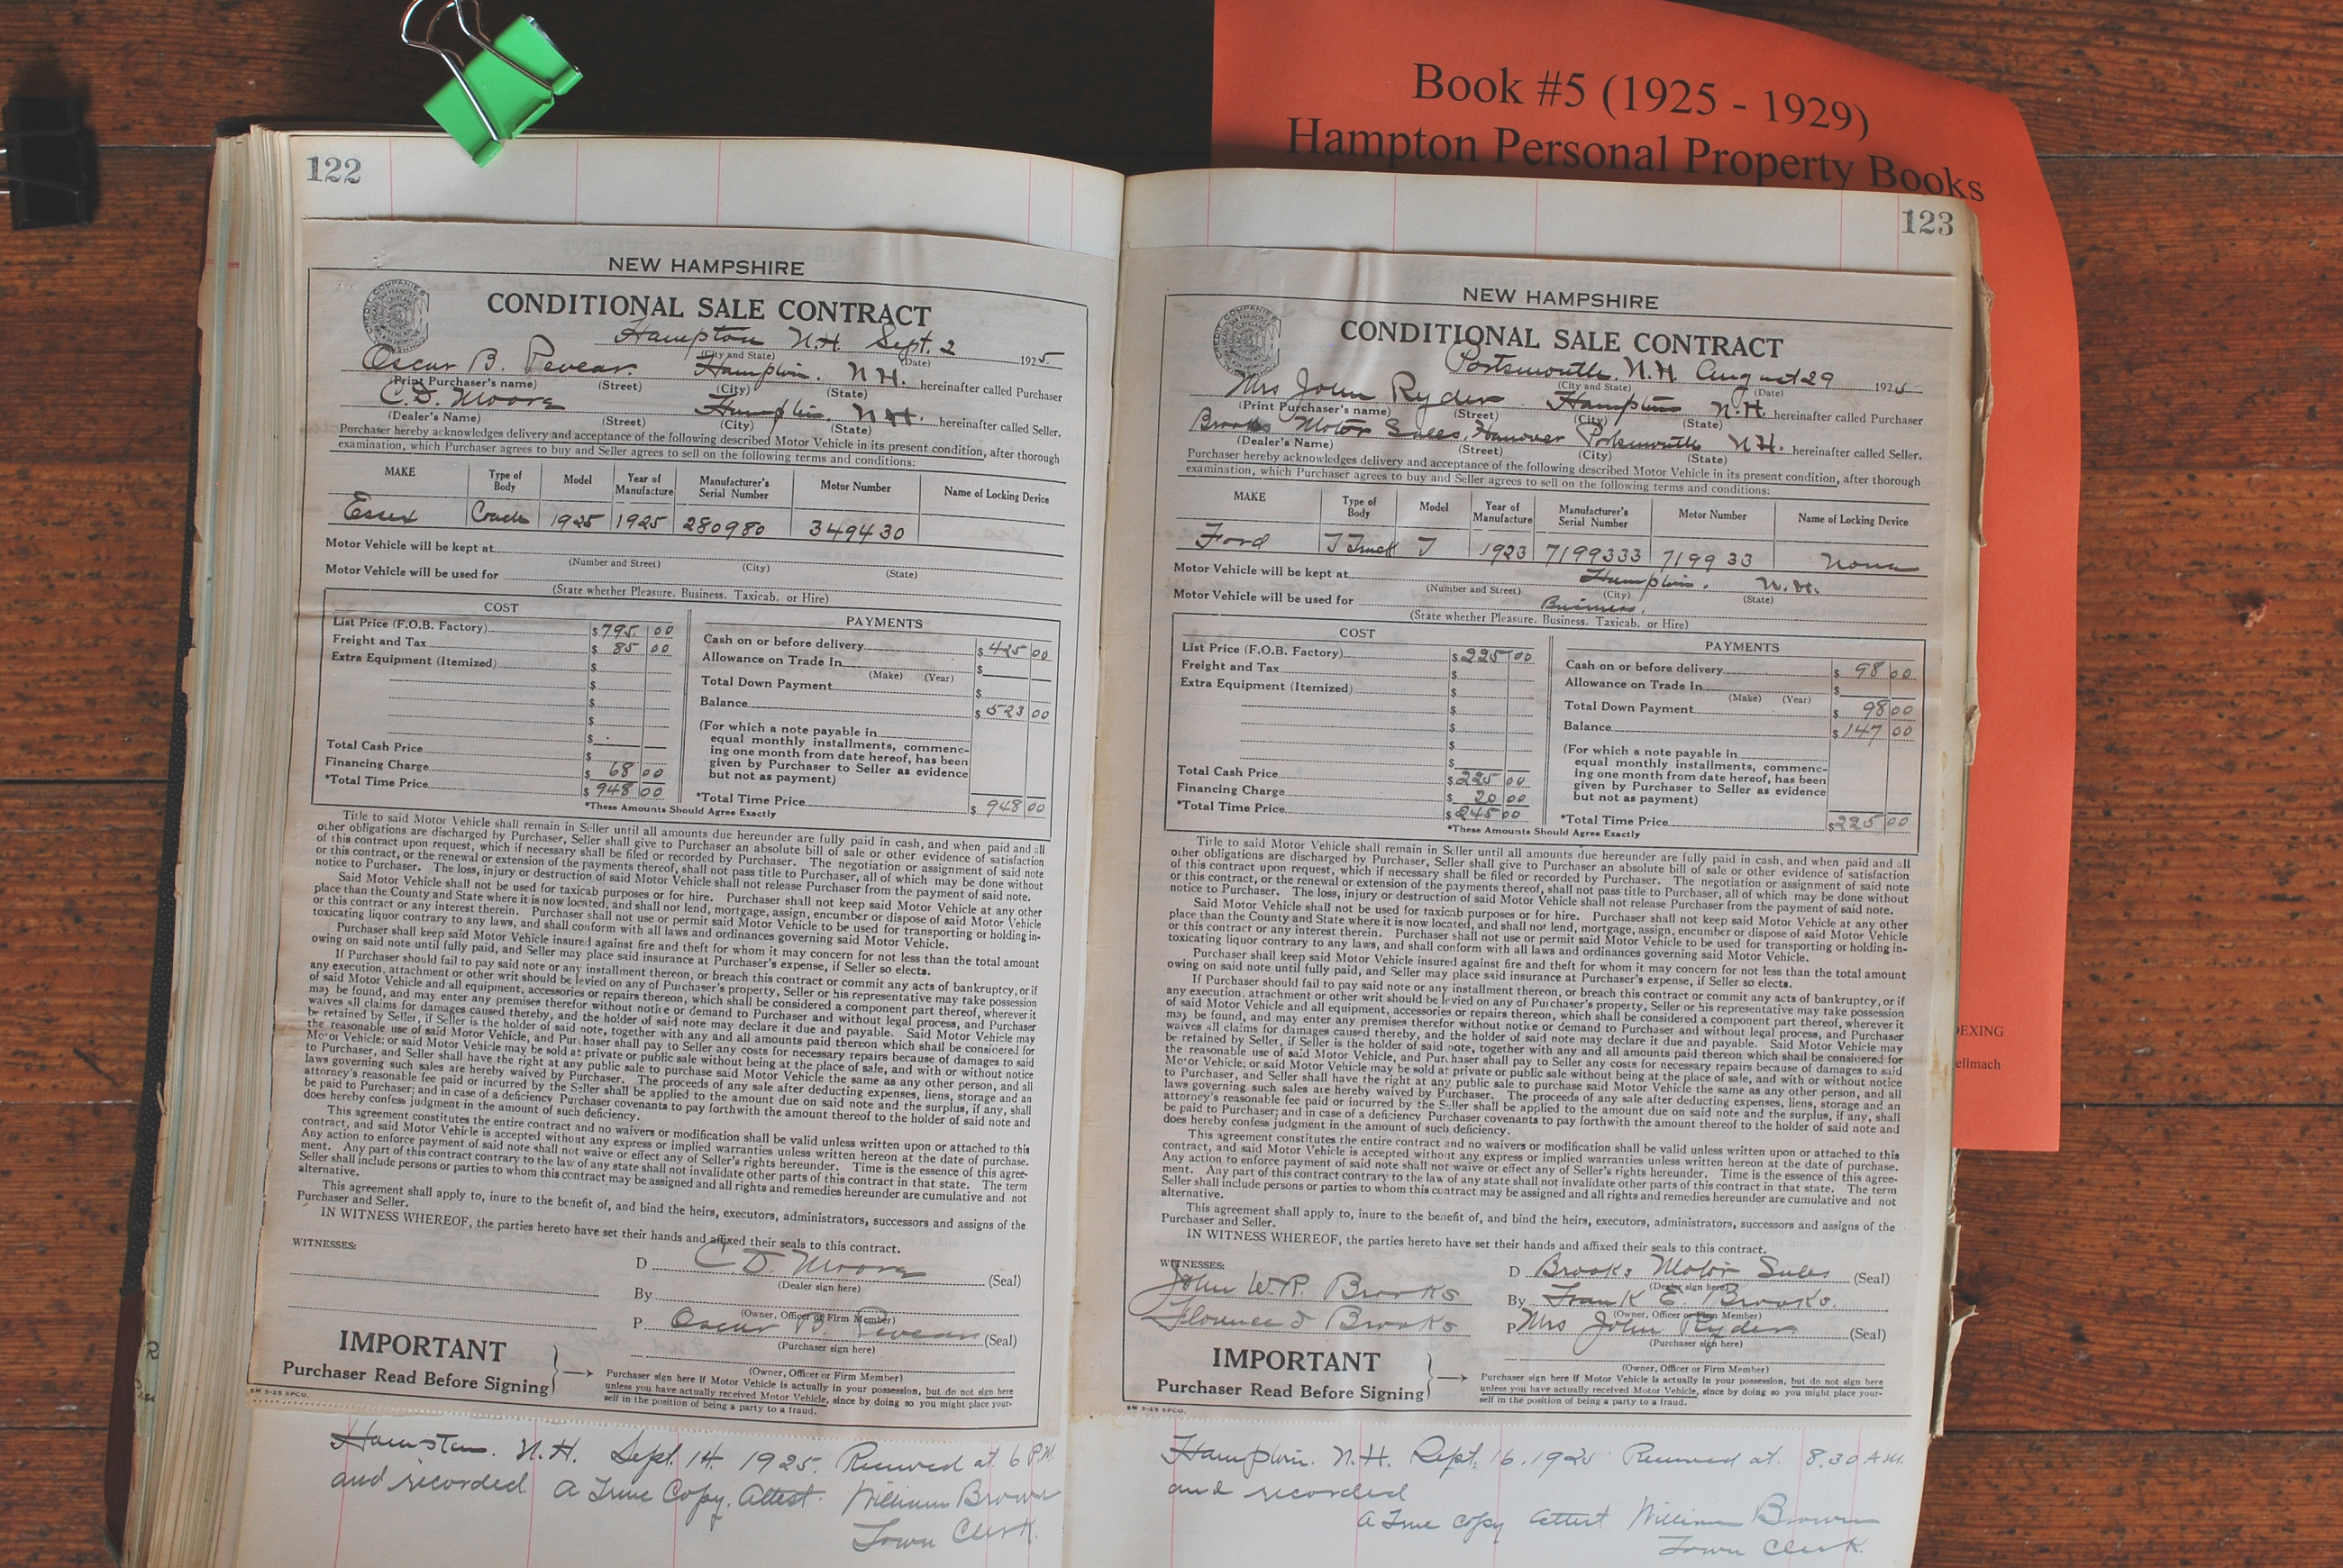 Book #5 (1925 - 1929)
Hampton Personal Property Books
EXING
ellmach
122
NEW HAMPSHIRE
CONDITIONAL SALE CONTRACT
Hampton N.H. Sept. 2 1925
(City and State) (Date)
Oscar B. Pevear Hampton. N.H. hereinafter called Purchaser
(Print Purchaser's name) (Street) (City) (State)
C.D. Moore Hampton. N.H. hereinafter called Seller.
(Dealer's Name) (Street) (City) (State)
Purchaser hereby acknowledges delivery and acceptance of the following described Motor Vehicle in its present condition, after thorough
examination, which Purchaser agrees to buy and Seller agrees to sell on the following terms and conditions:
MAKE Type of Body Model Year of Manufacture Manufacturer's Serial Number Motor Number Name of Locking Device
Essex Coach 1925 1925 280980 349430
Motor Vehicle will be kept at
(Number and Street) (City) (State)
Motor Vehicle will be used for
(State whether Pleasure. Business. Taxicab. or Hire)
COST
List Price (F.O.B. Factory) $795.00
Freight and Tax $ 85 00
Extra Equipment (Itemized) $
$
$
$
$
Total Cash Price $
Financing Charge $ 68 00
*Total Time Price $ 948 00
PAYMENTS
Cash on or before delivery $ 425 00
Allowance on Trade In $
(Make) (Year)
Total Down Payment $
Balance $ 523 00
(For which a note payable in
equal monthly installments, commenc-
ing one month from date hereof, has been
given by Purchaser to Seller as evidence
but not as payment)
*Total Time Price $ 948 00
*These Amounts Should Agree Exactly
Title to said Motor Vehicle shall remain in Seller until all amounts due hereunder are fully paid in cash, and when paid and all
other obligations are discharged by Purchaser, Seller shall give to Purchaser an absolute bill of sale or other evidence of satisfaction
of this contract upon request, which if necessary shall be filed or recorded by Purchaser. The negotiation or assignment of said note
or this contract, or the renewal or extension of the payments thereof, shall not pass title to Purchaser, all of which may be done without
notice to Purchaser. The loss, injury or destruction of said Motor Vehicle shall not release Purchaser from the payment of said note.
Said Motor Vehicle shall not be used for taxicab purposes or for hire. Purchaser shall not keep said Motor Vehicle at any other
place than the County and State where it is now located, and shall not lend, mortgage, assign, encumber or dispose of said Motor Vehicle
or this contract or any interest therein. Purchaser shall not use or permit said Motor Vehicle to be used for transporting or holding in-
toxicating liquor contrary to any laws, and shall conform with all laws and ordinances governing said Motor Vehicle.
Purchaser shall keep said Motor Vehicle insured against fire and theft for whom it may concern for not less than the total amount
owing on said note until fully paid, and Seller may place said insurance at Purchaser's expense, if Seller so elects.
If Purchaser should fail to pay said note or any installment thereon, or breach this contract or commit any acts of bankruptcy, or if
any execution, attachment or other writ should be levied on any of Purchaser's property, Seller or his representative may take possession
of said Motor Vehicle and all equipment, accessories or repairs thereon, which shall be considered a component part thereof, wherever it
may be found, and may enter any premises therefor without notice or demand to Purchaser and without legal process, and Purchaser
waives all claims for damages caused thereby, and the holder of said note may declare it due and payable. Said Motor Vehicle may
be retained by Seller, if Seller is the holder of said note, together with any and all amounts paid thereon which shall be considered for
the reasonable use of said Motor Vehicle, and Purchaser shall pay to Seller any costs for necessary repairs because of damages to said
Motor Vehicle; or said Motor Vehicle may be sold at private or public sale without being at the place of sale, and with or without notice
to Purchaser, and Seller shall have the right at any public sale to purchase said Motor Vehicle the same as any other person, and all
laws governing such sales are hereby waived by Purchaser. The proceeds of any sale after deducting expenses, liens, storage and an
attorney's reasonable fee paid or incurred by the Seller shall be applied to the amount due on said note and the surplus, if any, shall
be paid to Purchaser; and in case of a deficiency Purchaser covenants to pay forthwith the amount thereof to the holder of said note and
does hereby confess judgment in the amount of such deficiency.
This agreement constitutes the entire contract and no waivers or modification shall be valid unless written upon or attached to this
contract, and said Motor Vehicle is accepted without any express or implied warranties unless written hereon at the date of purchase.
Any action to enforce payment of said note shall not waive or effect any of Seller's rights hereunder. Time is the essence of this agree-
ment. Any part of this contract contrary to the law of any state shall not invalidate other parts of this contract in that state. The term
Seller shall include persons or parties to whom this contract may be assigned and all rights and remedies hereunder are cumulative and not
alternative.
This agreement shall apply to, inure to the benefit of, and bind the heirs, executors, administrators, successors and assigns of the
Purchaser and Seller.
IN WITNESS WHEREOF, the parties hereto have set their hands and affixed their seals to this contract.
WITNESSES:
D C.D. Moore (Seal)
(Dealer sign here)
By
(Owner, Officer or Firm Member)
P Oscar B. Pevear (Seal)
(Purchaser sign here)
(Owner, Officer or Firm Member)
IMPORTANT
Purchaser Read Before Signing
Purchaser sign here if Motor Vehicle is actually in your possession, but do not sign here
unless you have actually received Motor Vehicle, since by doing so you might place your-
self in the position of being a party to a fraud.
5M 5-25 SPCO.
Hampton. N.H. Sept. 14 1925. Received at 6 P.M.
and recorded A True Copy. Attest. William Brown
Town Clerk.
123
NEW HAMPSHIRE
CONDITIONAL SALE CONTRACT
Portsmouth, N.H. August 29 1925
(City and State) (Date)
Mrs John Ryder Hampton N.H. hereinafter called Purchaser
(Print Purchaser's name) (Street) (City) (State)
Brooks Motor Sales, Hanover Portsmouth N.H. hereinafter called Seller.
(Dealer's Name) (Street) (City) (State)
Purchaser hereby acknowledges delivery and acceptance of the following described Motor Vehicle in its present condition, after thorough
examination, which Purchaser agrees to buy and Seller agrees to sell on the following terms and conditions:
MAKE Type of Body Model Year of Manufacture Manufacturer's Serial Number Motor Number Name of Locking Device
Ford T Truck T 1923 7199333 719933 None
Motor Vehicle will be kept at Hampton. N.H.
(Number and Street) (City) (State)
Motor Vehicle will be used for Business.
(State whether Pleasure. Business. Taxicab. or Hire)
COST
List Price (F.O.B. Factory) $ 225 00
Freight and Tax $
Extra Equipment (Itemized) $
$
$
$
$
Total Cash Price $ 225 00
Financing Charge $ 20 00
*Total Time Price $ 245 00
PAYMENTS
Cash on or before delivery $ 98 00
Allowance on Trade In $
(Make) (Year)
Total Down Payment $ 98 00
Balance $ 147 00
(For which a note payable in
equal monthly installments, commenc-
ing one month from date hereof, has been
given by Purchaser to Seller as evidence
but not as payment)
*Total Time Price $ 225 00
*These Amounts Should Agree Exactly
Title to said Motor Vehicle shall remain in Seller until all amounts due hereunder are fully paid in cash, and when paid and all
other obligations are discharged by Purchaser, Seller shall give to Purchaser an absolute bill of sale or other evidence of satisfaction
of this contract upon request, which if necessary shall be filed or recorded by Purchaser. The negotiation or assignment of said note
or this contract, or the renewal or extension of the payments thereof, shall not pass title to Purchaser, all of which may be done without
notice to Purchaser. The loss, injury or destruction of said Motor Vehicle shall not release Purchaser from the payment of said note.
Said Motor Vehicle shall not be used for taxicab purposes or for hire. Purchaser shall not keep said Motor Vehicle at any other
place than the County and State where it is now located, and shall not lend, mortgage, assign, encumber or dispose of said Motor Vehicle
or this contract or any interest therein. Purchaser shall not use or permit said Motor Vehicle to be used for transporting or holding in-
toxicating liquor contrary to any laws, and shall conform with all laws and ordinances governing said Motor Vehicle.
Purchaser shall keep said Motor Vehicle insured against fire and theft for whom it may concern for not less than the total amount
owing on said note until fully paid, and Seller may place said insurance at Purchaser's expense, if Seller so elects.
If Purchaser should fail to pay said note or any installment thereon, or breach this contract or commit any acts of bankruptcy, or if
any execution, attachment or other writ should be levied on any of Purchaser's property, Seller or his representative may take possession
of said Motor Vehicle and all equipment, accessories or repairs thereon, which shall be considered a component part thereof, wherever it
may be found, and may enter any premises therefor without notice or demand to Purchaser and without legal process, and Purchaser
waives all claims for damages caused thereby, and the holder of said note may declare it due and payable. Said Motor Vehicle may
be retained by Seller, if Seller is the holder of said note, together with any and all amounts paid thereon which shall be considered for
the reasonable use of said Motor Vehicle, and Purchaser shall pay to Seller any costs for necessary repairs because of damages to said
Motor Vehicle; or said Motor Vehicle may be sold at private or public sale without being at the place of sale, and with or without notice
to Purchaser, and Seller shall have the right at any public sale to purchase said Motor Vehicle the same as any other person, and all
laws governing such sales are hereby waived by Purchaser. The proceeds of any sale after deducting expenses, liens, storage and an
attorney's reasonable fee paid or incurred by the Seller shall be applied to the amount due on said note and the surplus, if any, shall
be paid to Purchaser; and in case of a deficiency Purchaser covenants to pay forthwith the amount thereof to the holder of said note and
does hereby confess judgment in the amount of such deficiency.
This agreement constitutes the entire contract and no waivers or modification shall be valid unless written upon or attached to this
contract, and said Motor Vehicle is accepted without any express or implied warranties unless written hereon at the date of purchase.
Any action to enforce payment of said note shall not waive or effect any of Seller's rights hereunder. Time is the essence of this agree-
ment. Any part of this contract contrary to the law of any state shall not invalidate other parts of this contract in that state. The term
Seller shall include persons or parties to whom this contract may be assigned and all rights and remedies hereunder are cumulative and not
alternative.
This agreement shall apply to, inure to the benefit of, and bind the heirs, executors, administrators, successors and assigns of the
Purchaser and Seller.
IN WITNESS WHEREOF, the parties hereto have set their hands and affixed their seals to this contract.
WITNESSES:
John W.P. Brooks
Florence J Brooks
D Brooks Motor Sales (Seal)
(Dealer sign here)
By Frank E. Brooks.
(Owner, Officer or Firm Member)
P Mrs John Ryder (Seal)
(Purchaser sign here)
(Owner, Officer or Firm Member)
IMPORTANT
Purchaser Read Before Signing
Purchaser sign here if Motor Vehicle is actually in your possession, but do not sign here
unless you have actually received Motor Vehicle, since by doing so you might place your-
self in the position of being a party to a fraud.
5M 5-25 SPCO.
Hampton. N.H. Sept. 16. 1925 Received at 8.30 A.M.
and recorded
A True Copy Attest William Brown
Town Clerk.